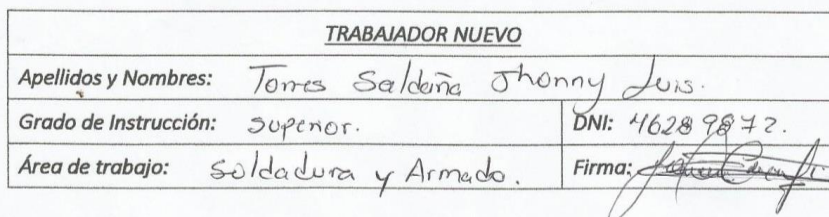 TRABAJADOR NUEVO
Apellidos y Nombres: Torres Saldaña Jhonny Luis.
Grado de Instrucción: Superior. DNI: 46289872.
Área de trabajo: Soldadura y Armado. Firma: